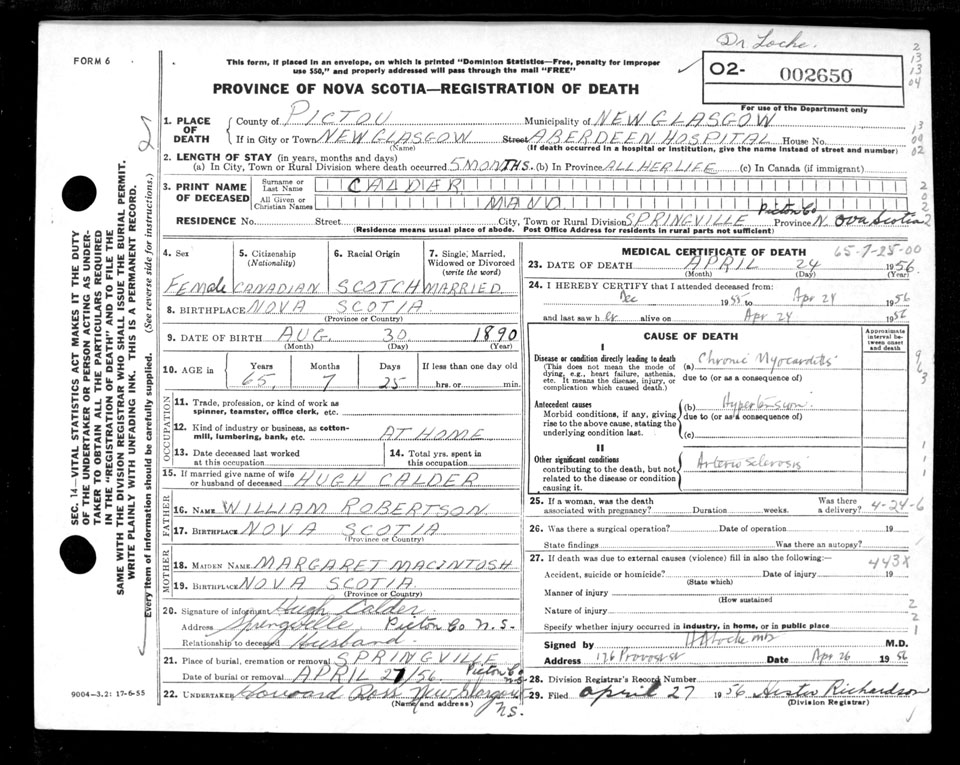 Dr Locke.
FORM 6
This form, if placed in an envelope, on which is printed "Dominion Statistics—Free, penalty for improper
use $50," and properly addressed will pass through the mail "FREE"
02- 002650
For use of the Department only
PROVINCE OF NOVA SCOTIA—REGISTRATION OF DEATH
SEC. 14—VITAL STATISTICS ACT MAKES IT THE DUTY
OF THE UNDERTAKER OR PERSON ACTING AS UNDER-
TAKER TO OBTAIN ALL THE PARTICULARS REQUIRED
IN THE "REGISTRATION OF DEATH" AND TO FILE THE
SAME WITH THE DIVISION REGISTRAR WHO SHALL ISSUE THE BURIAL PERMIT.
WRITE PLAINLY WITH UNFADING INK. THIS IS A PERMANENT RECORD.
Every item of information should be carefully supplied. (See reverse side for instructions.)
1. PLACE OF DEATH
County of PICTOU Municipality of NEW GLASGOW
If in City or Town NEW GLASGOW Street ABERDEEN HOSPITAL House No.
(Name) (If death occurred in a hospital or institution, give the name instead of street and number)
2. LENGTH OF STAY (in years, months and days)
(a) In City, Town or Rural Division where death occurred 5 MONTHS. (b) In Province ALL HER LIFE (c) In Canada (if immigrant)
3. PRINT NAME OF DECEASED
Surname or Last Name CALDER
All Given or Christian Names MAND
RESIDENCE No. Street City, Town or Rural Division SPRINGVILLE Pictou Co Province N. ova Scotia
(Residence means usual place of abode. Post Office Address for residents in rural parts not sufficient)
4. Sex
Female
5. Citizenship (Nationality)
CANADIAN
6. Racial Origin
SCOTCH
7. Single, Married, Widowed or Divorced (write the word)
MARRIED
8. BIRTHPLACE NOVA SCOTIA
(Province or Country)
9. DATE OF BIRTH AUG. 30 1890
(Month) (Day) (Year)
10. AGE in Years Months Days If less than one day old
65 7 25 hrs. or min.
OCCUPATION
11. Trade, profession, or kind of work as
spinner, teamster, office clerk, etc.
12. Kind of industry or business, as cotton-
mill, lumbering, bank, etc. AT HOME
13. Date deceased last worked
at this occupation
14. Total yrs. spent in
this occupation
15. If married give name of wife
or husband of deceased HUGH CALDER
FATHER
16. NAME WILLIAM ROBERTSON
17. BIRTHPLACE NOVA SCOTIA
(Province or Country)
MOTHER
18. MAIDEN NAME MARGARET MACINTOSH
19. BIRTHPLACE NOVA SCOTIA
(Province or Country)
20. Signature of informant Hugh Calder
Address Springville Pictou Co N.S.
Relationship to deceased Husband
21. Place of burial, cremation or removal SPRINGVILLE
Date of burial or removal APRIL 27/56. Pictou Co N.S.
22. UNDERTAKER Howard Ross New Glasgow N.S.
(Name and address)
9004-3.2: 17-6-55
MEDICAL CERTIFICATE OF DEATH 65-7-25-00
23. DATE OF DEATH APRIL 24 1956
(Month) (Day) (Year)
24. I HEREBY CERTIFY that I attended deceased from:
Dec 1955 to Apr 24 1956
and last saw her alive on Apr 24 1956
CAUSE OF DEATH
Approximate interval between onset and death
I
Disease or condition directly leading to death
(This does not mean the mode of
dying, e.g., heart failure, asthenia,
etc. It means the disease, injury, or
complication which caused death.)
(a) Chronic Myocarditis
due to (or as a consequence of)
Antecedent causes
Morbid conditions, if any, giving
rise to the above cause, stating the
underlying condition last.
(b) Hypertension
due to (or as a consequence of)
(c)
II
Other significant conditions
contributing to the death, but not
related to the disease or condition
causing it.
Arteriosclerosis
25. If a woman, was the death
associated with pregnancy? Duration weeks. Was there a delivery? 4-24-6
26. Was there a surgical operation? Date of operation 19
State findings Was there an autopsy?
27. If death was due to external causes (violence) fill in also the following:—
443X
Accident, suicide or homicide? Date of injury 19
(State which)
Manner of injury
(How sustained
Nature of injury
Specify whether injury occurred in industry, in home, or in public place
Signed by Locke MD M.D.
Address 136 Provost St Date Apr 26 1956
28. Division Registrar's Record Number
29. Filed April 27 1956 Hester Richardson
(Division Registrar)